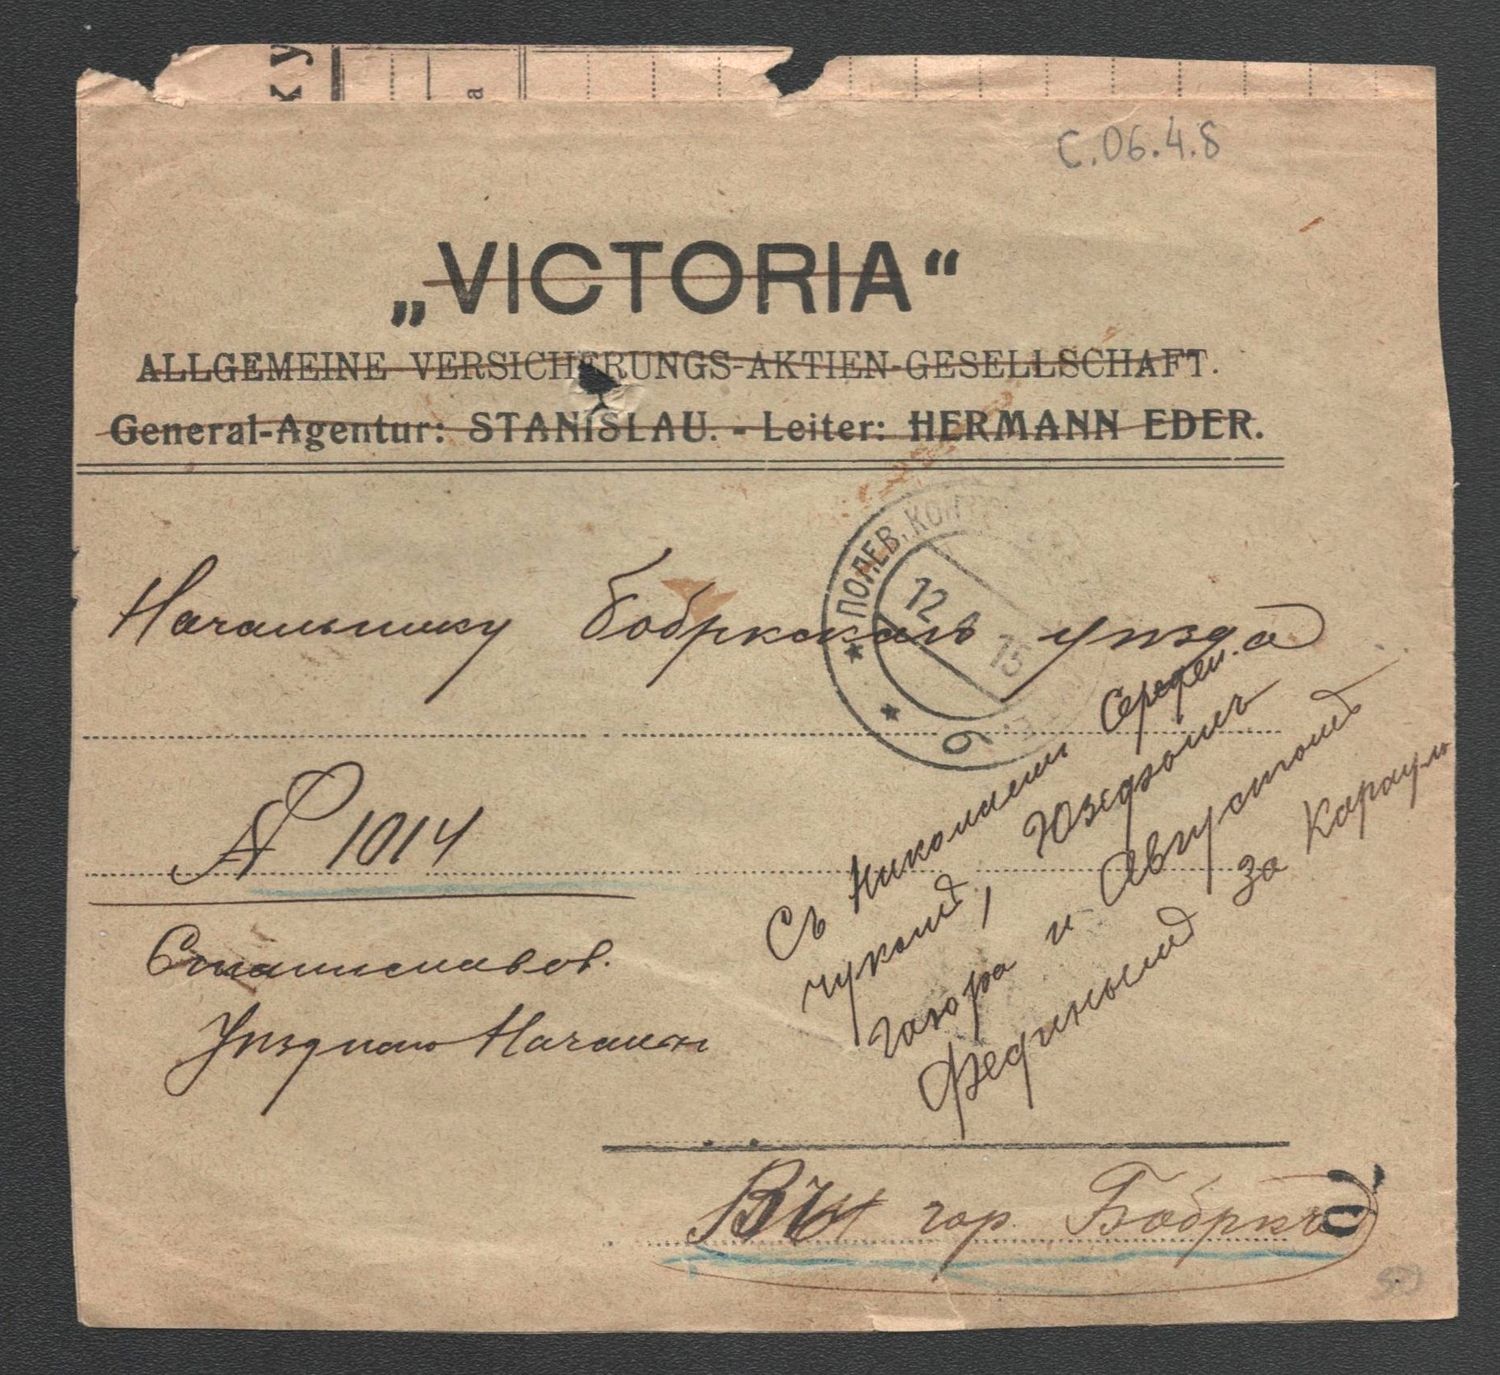 ку
а
C.06.4.8
„VICTORIA“
ALLGEMEINE VERSICHERUNGS-AKTIEN-GESELLSCHAFT.
General-Agentur: STANISLAU. - Leiter: HERMANN EDER.
ПОЛЕВ. КОНТ
12 15
б
Начальнику Бобркскаго уѣзда
№ 1014
Станиславов.
Уѣзднаго Начальн
Съ Николаемъ Середен.
чукомъ, Юзефомъ
и Августомъ
за Карауль
гор. Бобркѣ